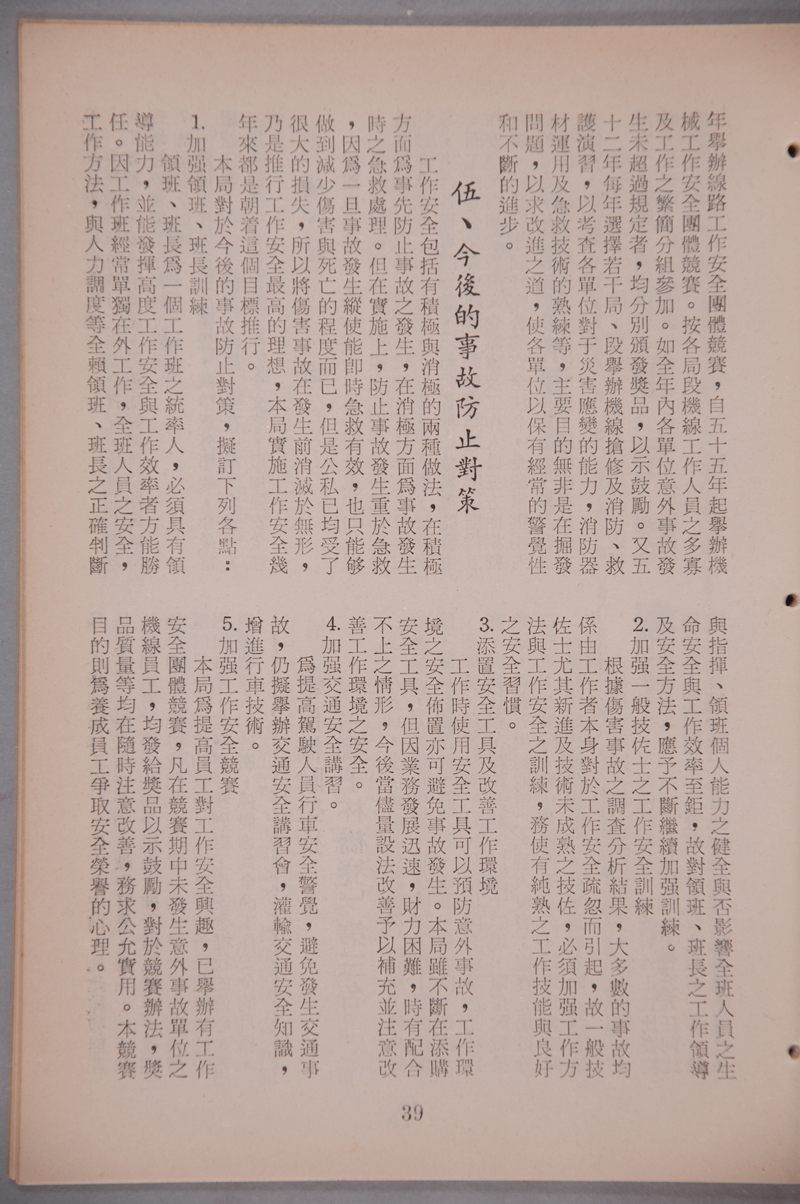 年舉辦線路工作安全團體競賽，自五十五年起舉辦機
械工作安全團體競賽。按各局段機線工作人員之多寡
及工作之繁簡分組參加。如全年內各單位意外事故發
生未超過規定者，均分別頒發獎品，以示鼓勵。又五
十二年每年選擇若干局、段舉辦機線搶修及消防、救
護演習，以考查各單位對于災害應變的能力，消防器
材運用及急救技術的熟練等，主要目的無非是在掘發
問題，以求改進之道，使各單位以保有經常的警覺性
和不斷的進步。
伍、今後的事故防止對策
工作安全包括有積極與消極的兩種做法，在積極
方面爲事先防止事故之發生，在消極方面爲事故發生
時之急救處理。但在實施上，防止事故發生重於急救
，因爲一旦事故發生縱使能卽時急救有效，也只能够
做到減少傷害與死亡的程度而已，但是公私已均受了
很大的損失，所以將傷害事故在發生前消滅於無形，
乃是推行工作安全最高的理想，本局實施工作安全幾
年來都是朝着這個目標推行。
本局對於今後的事故防止對策，擬訂下列各點：
1.加强領班、班長訓練
領班、班長爲一個工作班之統率人，必須具有領
導能力，並能發揮高度工作安全與工作效率者方能勝
任。因工作班經常單獨在外工作，全班人員之安全，
工作方法，與人力調度等全賴領班、班長之正確判斷
與指揮、領班個人能力之健全與否影響全班人員之生
命安全與工作效率至鉅，故對領班、班長之工作領導
及安全方法，應予不斷繼續加强訓練。
2.加强一般技佐士之工作安全訓練
根據傷害事故之調查分析結果，大多數的事故均
係由工作者本身對於工作安全疏忽而引起，故一般技
佐士尤其新進及技術未成熟之技佐，必須加强工作方
法與工作安全之訓練，務使有純熟之工作技能與良好
之安全習慣。
3.添置安全工具及改善工作環境
工作時使用安全工具可以預防意外事故，工作環
境之安全佈置亦可避免事故發生。本局雖不斷在添購
安全工具，但因業務發展迅速，財力困難，時有配合
不上之情形，今後當儘量設法改善予以補充並注意改
善工作環境之安全。
4.加强交通安全講習。
爲提高駕駛人員行車安全警覺，避免發生交通事
故，仍擬舉辦交通安全講習會，灌輸交通安全知識，
增進行車技術。
5.加强工作安全競賽
本局爲提高員工對工作安全興趣，已舉辦有工作
安全團體競賽，凡在競賽期中未發生意外事故單位之
機線員工，均發給獎品以示鼓勵，對於競賽辦法，獎
品質量等均在隨時注意改善，務求公允實用。本競賽
目的則爲養成員工爭取安全榮譽的心理。
39